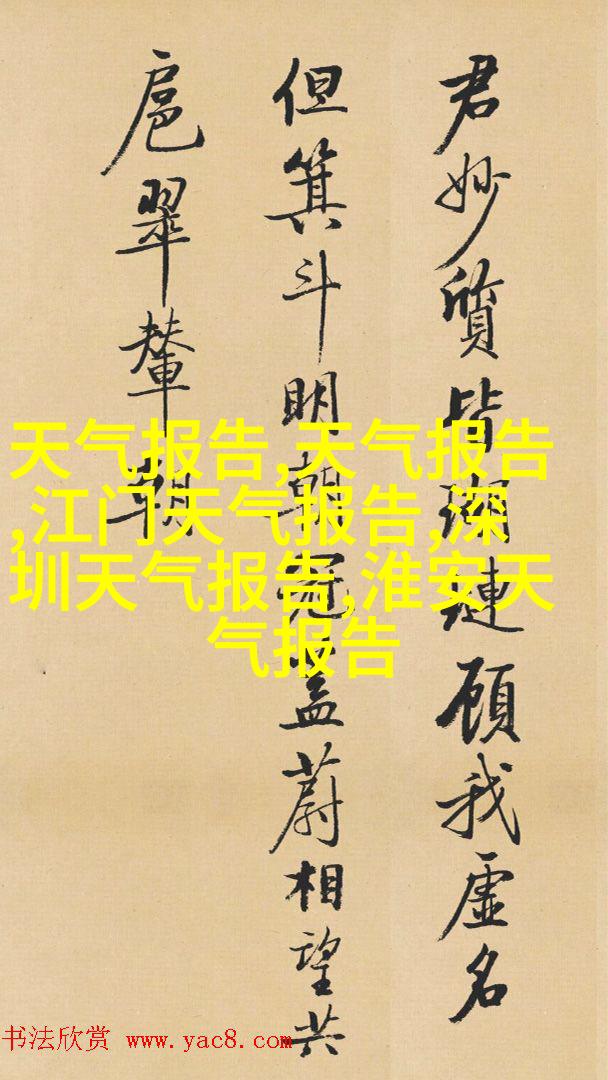 君妙質皆瑚璉顧我虛名
但箕斗明朝冠蓋蔚相望共
扈翠輦朝
天气报告,天气报告
,江门天气报告,深
圳天气报告,淮安天
气报告
书法欣赏 www.yac8.com